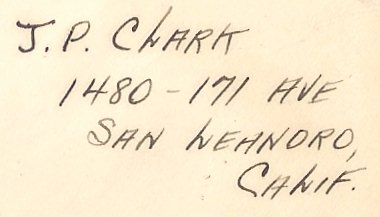 J.P. CLARK
1480-171 AVE
SAN LEANDRO,
CALIF.